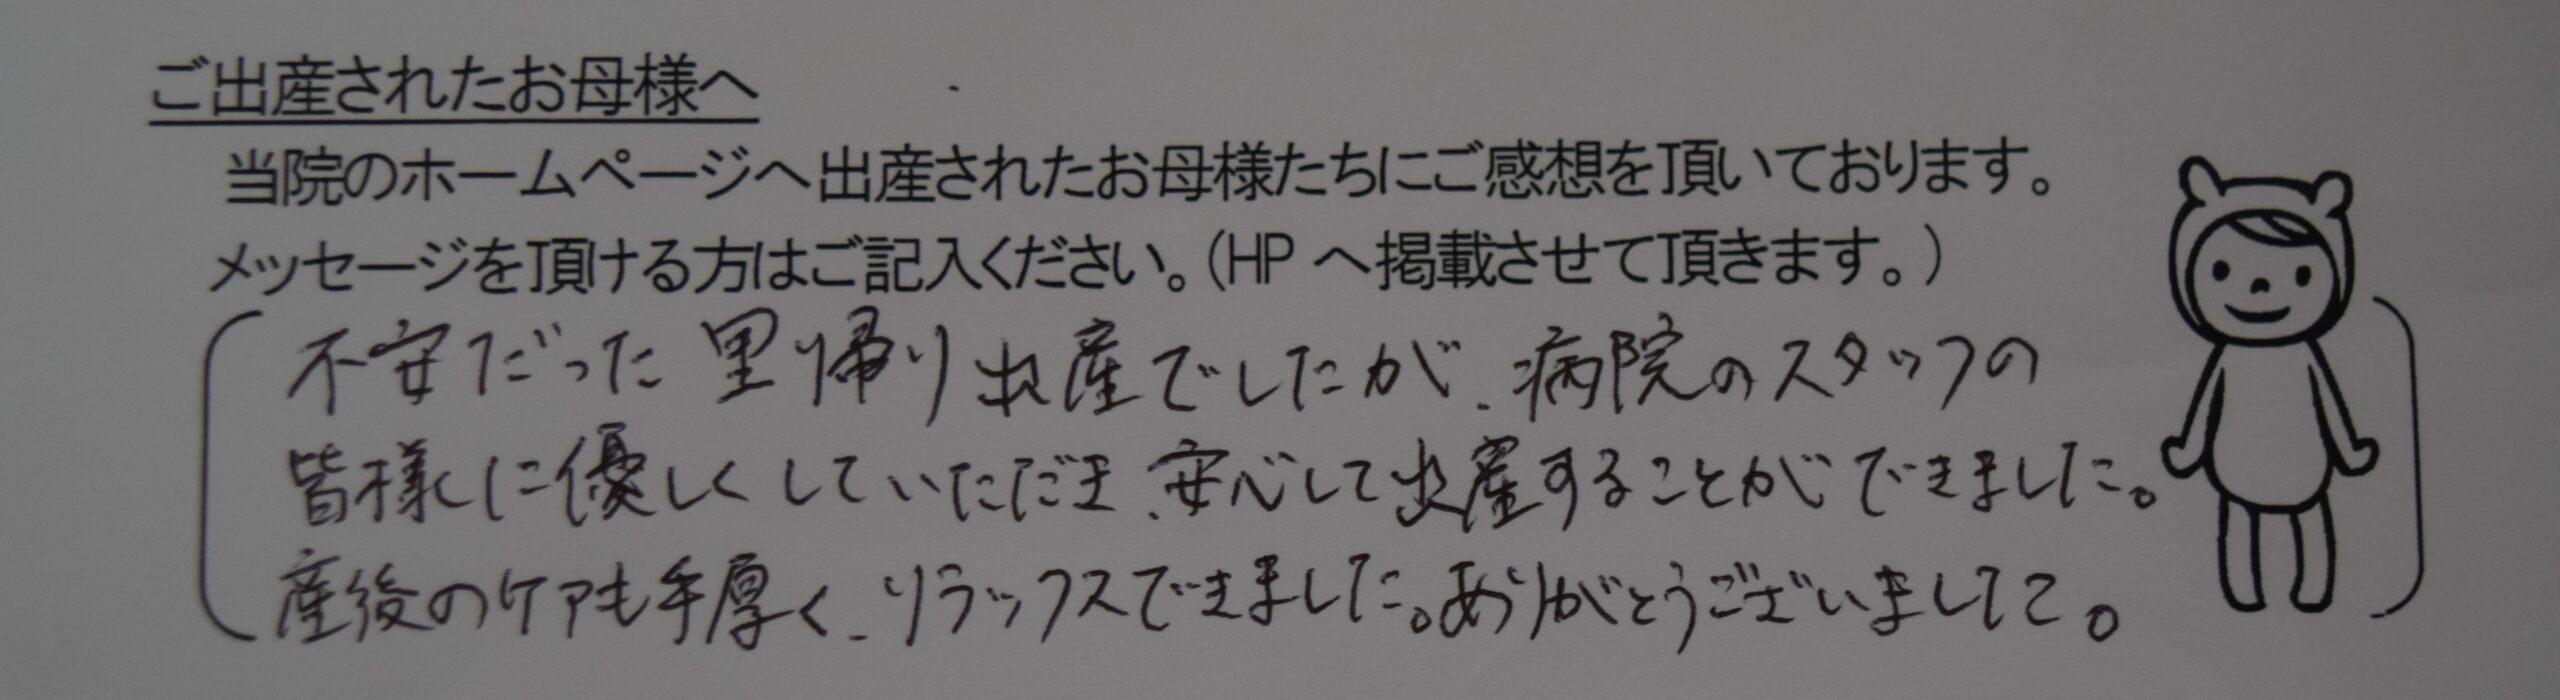 ご出産されたお母様へ
当院のホームページへ出産されたお母様たちにご感想を頂いております。
メッセージを頂ける方はご記入ください。(HP へ掲載させて頂きます。)
不安だった里帰り出産でしたが、病院のスタッフの
皆様に優しくしていただき、安心して出産することができました。
産後のケアも手厚く、リラックスできました。ありがとうございました。